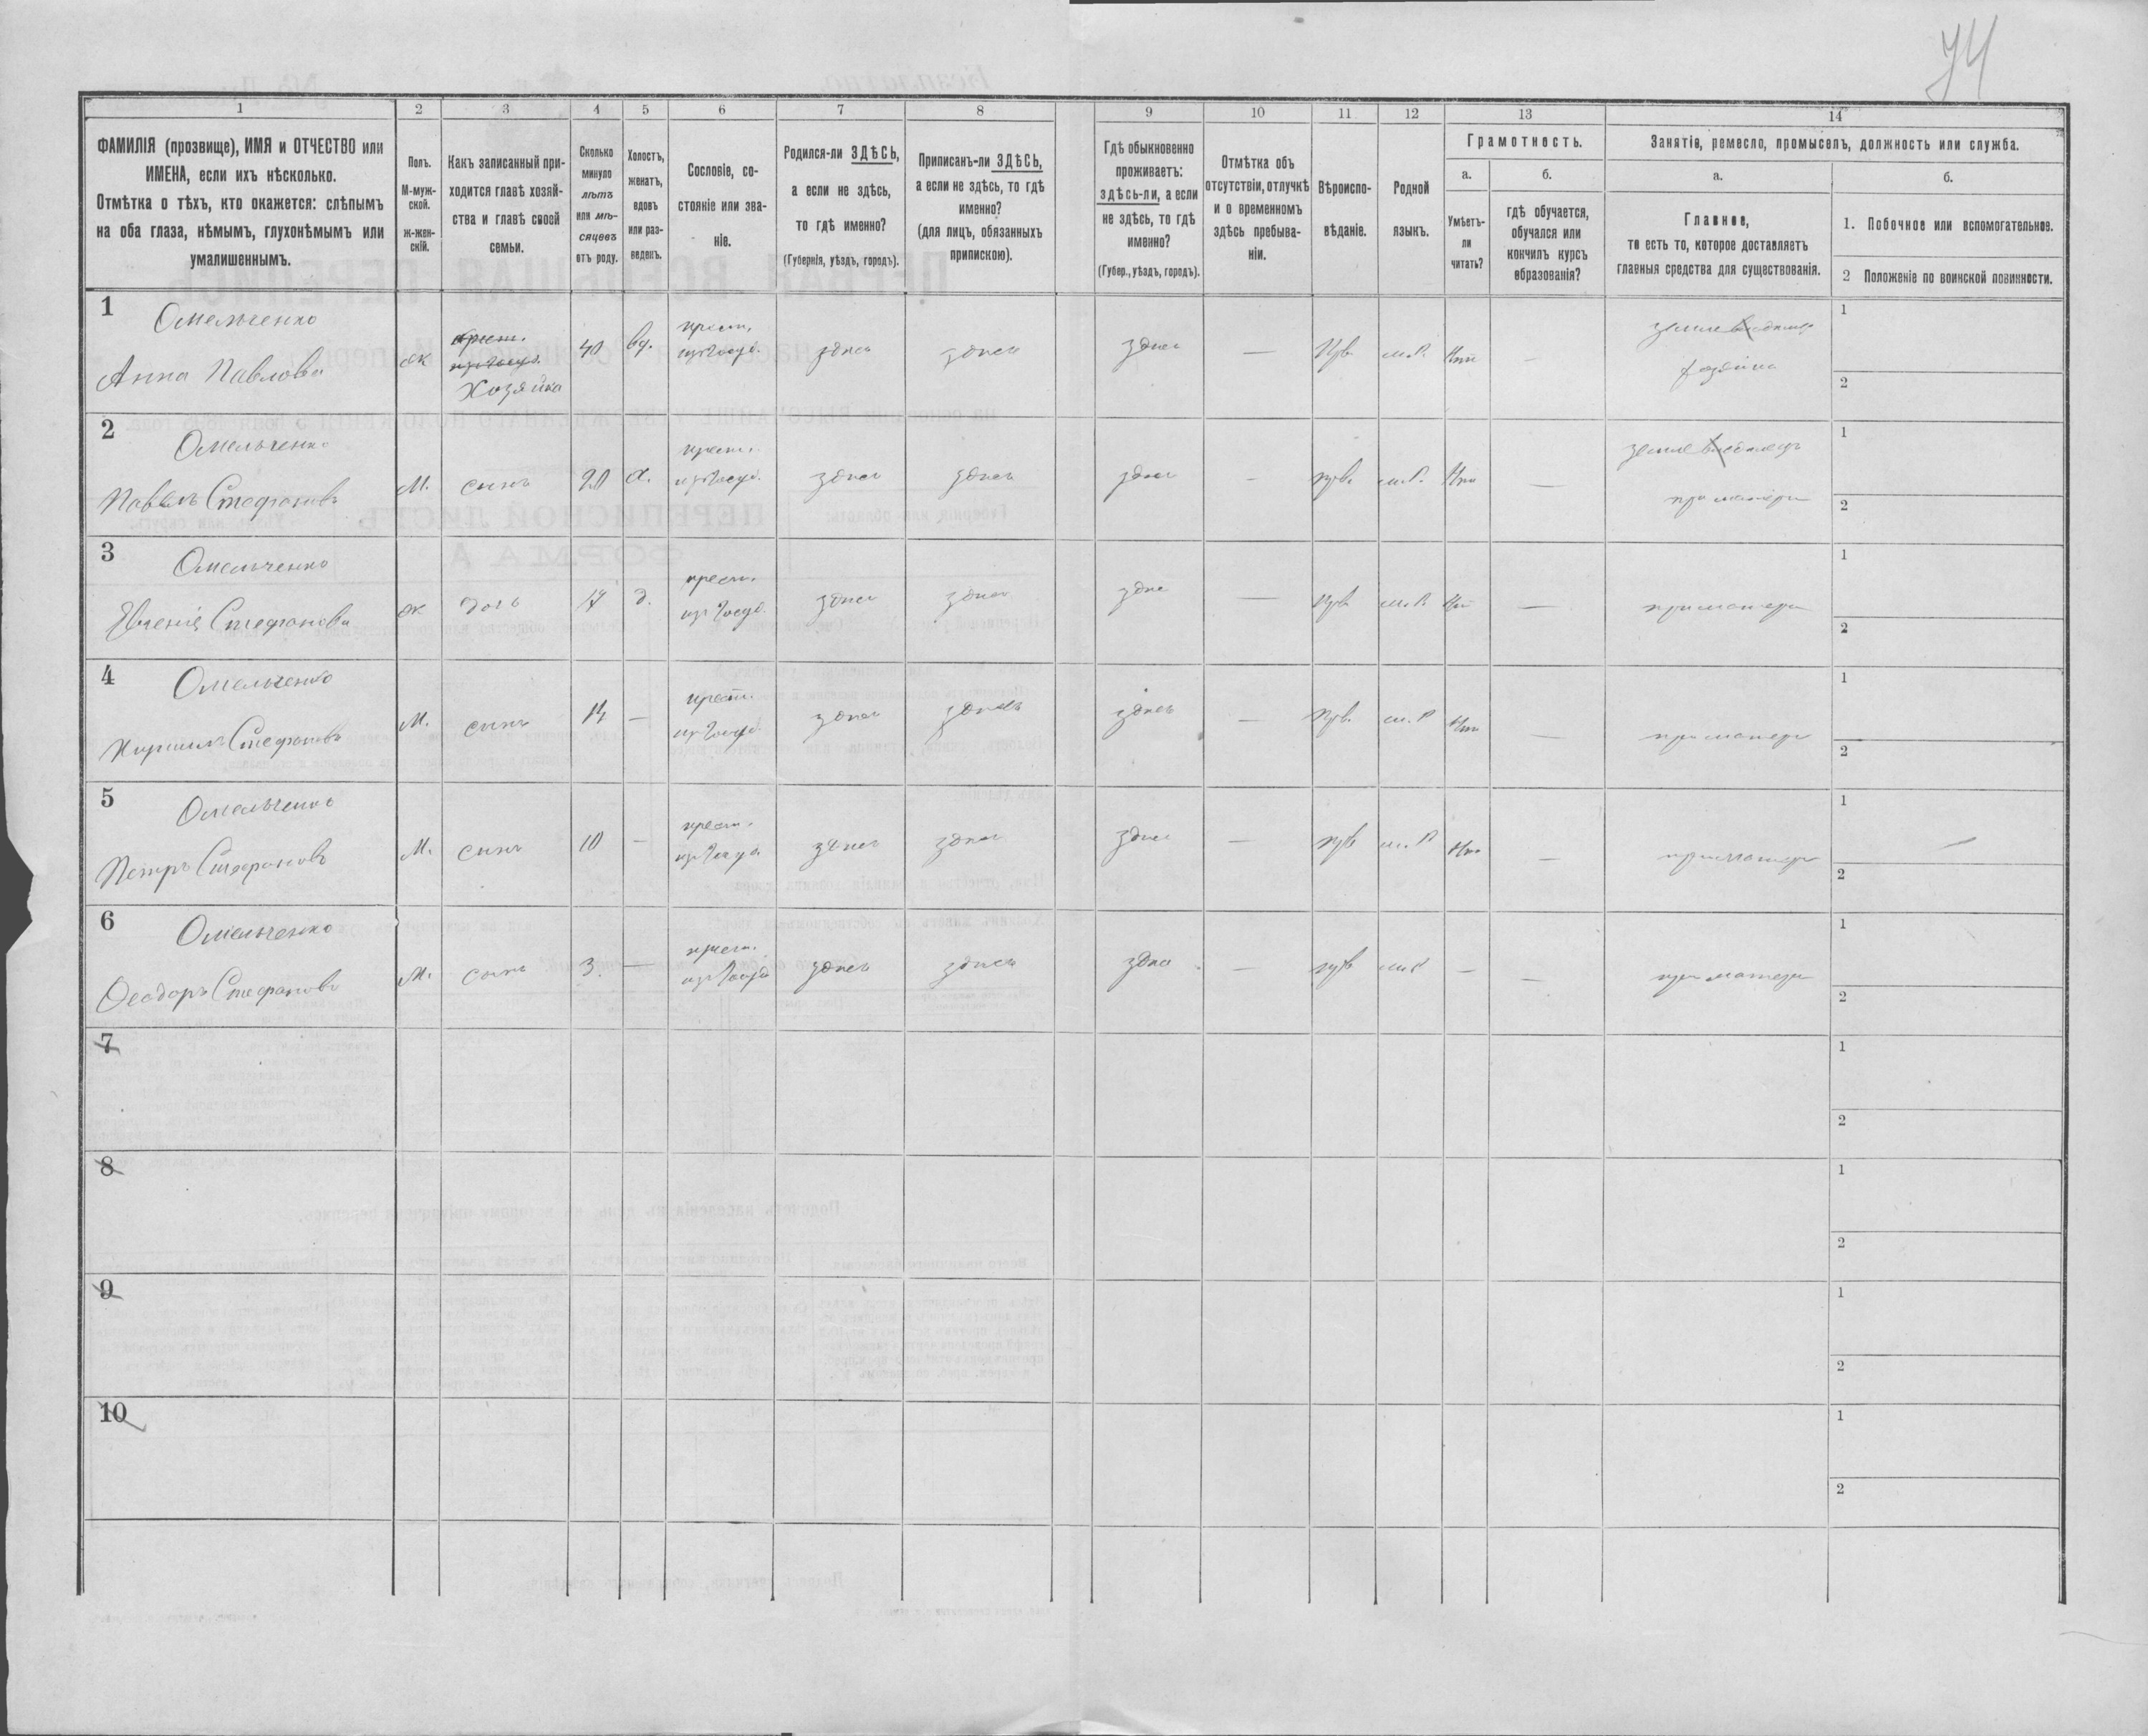 74
1 2 3 4 5 6 7 8 9 10 11 12 13 14
ФАМИЛІЯ (прозвище), ИМЯ и ОТЧЕСТВО или
ИМЕНА, если ихъ нѣсколько.
Отмѣтка о тѣхъ, кто окажется: слѣпымъ
на оба глаза, нѣмымъ, глухонѣмымъ или
умалишеннымъ.
Полъ.
М-муж-
ской.
ж-жен-
скій.
Какъ записанный при-
ходится главѣ хозяй-
ства и главѣ своей
семьи.
Сколько
минуло
лѣтъ
или мѣ-
сяцевъ
отъ роду.
Холостъ,
женатъ,
вдовъ
или раз-
веденъ.
Сословіе, со-
стояніе или зва-
ніе.
Родился-ли ЗДѢСЬ,
а если не здѣсь,
то гдѣ именно?
(Губернія, уѣздъ, городъ).
Приписанъ-ли ЗДѢСЬ,
а если не здѣсь, то гдѣ
именно?
(для лицъ, обязанныхъ
припискою).
Гдѣ обыкновенно
проживаетъ:
здѣсь-ли, а если
не здѣсь, то гдѣ
именно?
(Губер., уѣздъ, городъ).
Отмѣтка объ
отсутствіи, отлучкѣ
и о временномъ
здѣсь пребыва-
ніи.
Вѣроиспо-
вѣданіе.
Родной
языкъ.
Грамотность.
а.
Умѣетъ-
ли
читать?
б.
гдѣ обучается,
обучался или
кончилъ курсъ
образованія?
Занятіе, ремесло, промыселъ, должность или служба.
а.
Главное,
то есть то, которое доставляетъ
главныя средства для существованія.
б.
1. Побочное или вспомогательное.
2 Положеніе по воинской повинности.
1
Омельченко
Анна Павлова
ж
крест.
изъ госуд.
Хозяйка
40
вд.
крест.
изъ госуд.
здесь
здесь
здесь
—
Прв.
м.Р.
Нет
—
хозяйка
1
2
2
Омельченко
Павелъ Стефановъ
М.
сынъ
20
х.
крест.
изъ госуд.
здесь
здесь
здесь
-
прв.
м.Р.
Нет
—
при матери
1
2
3
Омельченко
Евгенія Стефанова
ж
дочь
17
д.
крест.
изъ госуд.
здесь
здесь
здесь
—
прв.
м.Р.
Нет
—
при матери
1
2
4
Омельченко
Кирилъ Стефановъ
М.
сынъ
14
—
крест.
изъ госуд.
здесь
здесь
здесь
—
прв.
м.Р
Нет
—
при матери
1
2
5
Омельченко
Петръ Стефановъ
М.
сынъ
10
-
крест.
изъ госуд.
здесь
здесь
здесь
—
прв
м.Р
Нет
—
при матери
1
—
2
6
Омельченко
Феодоръ Стефановъ
М.
сынъ
3
—
крест.
изъ госуд
здесь
здесь
здесь
—
прв
м.Р
—
—
при матери
1
2
7
1
2
8
1
2
9
1
2
10
1
2